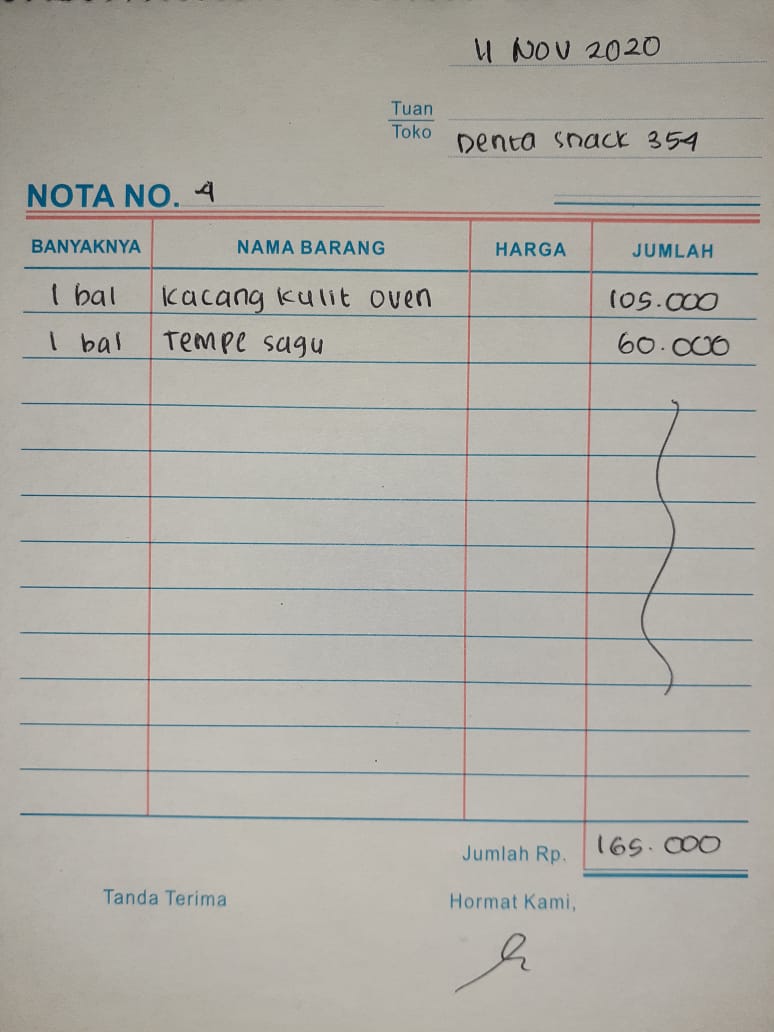 11 NOV 2020
Tuan
Toko Denta snack 354
NOTA NO. 4
BANYAKNYA NAMA BARANG HARGA JUMLAH
1 bal Kacang kulit oven 105.000
1 bal Tempe sagu 60.000
Jumlah Rp. 165.000
Tanda Terima Hormat Kami,